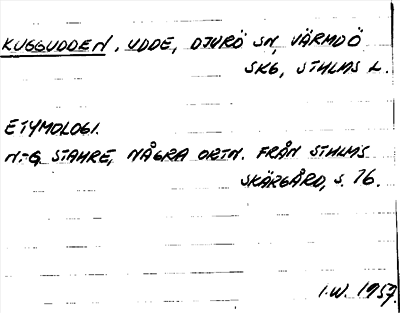 KUGGUDDEN, UDDE, DJURÖ SN, VÄRMDÖ
SKG, STHLMS L.
ETYMOLOGI.
N.-G. STAHRE, NÅGRA ORTN. FRÅN STHLMS
SKÄRGÅRD, S. 76.
I.W. 1957.